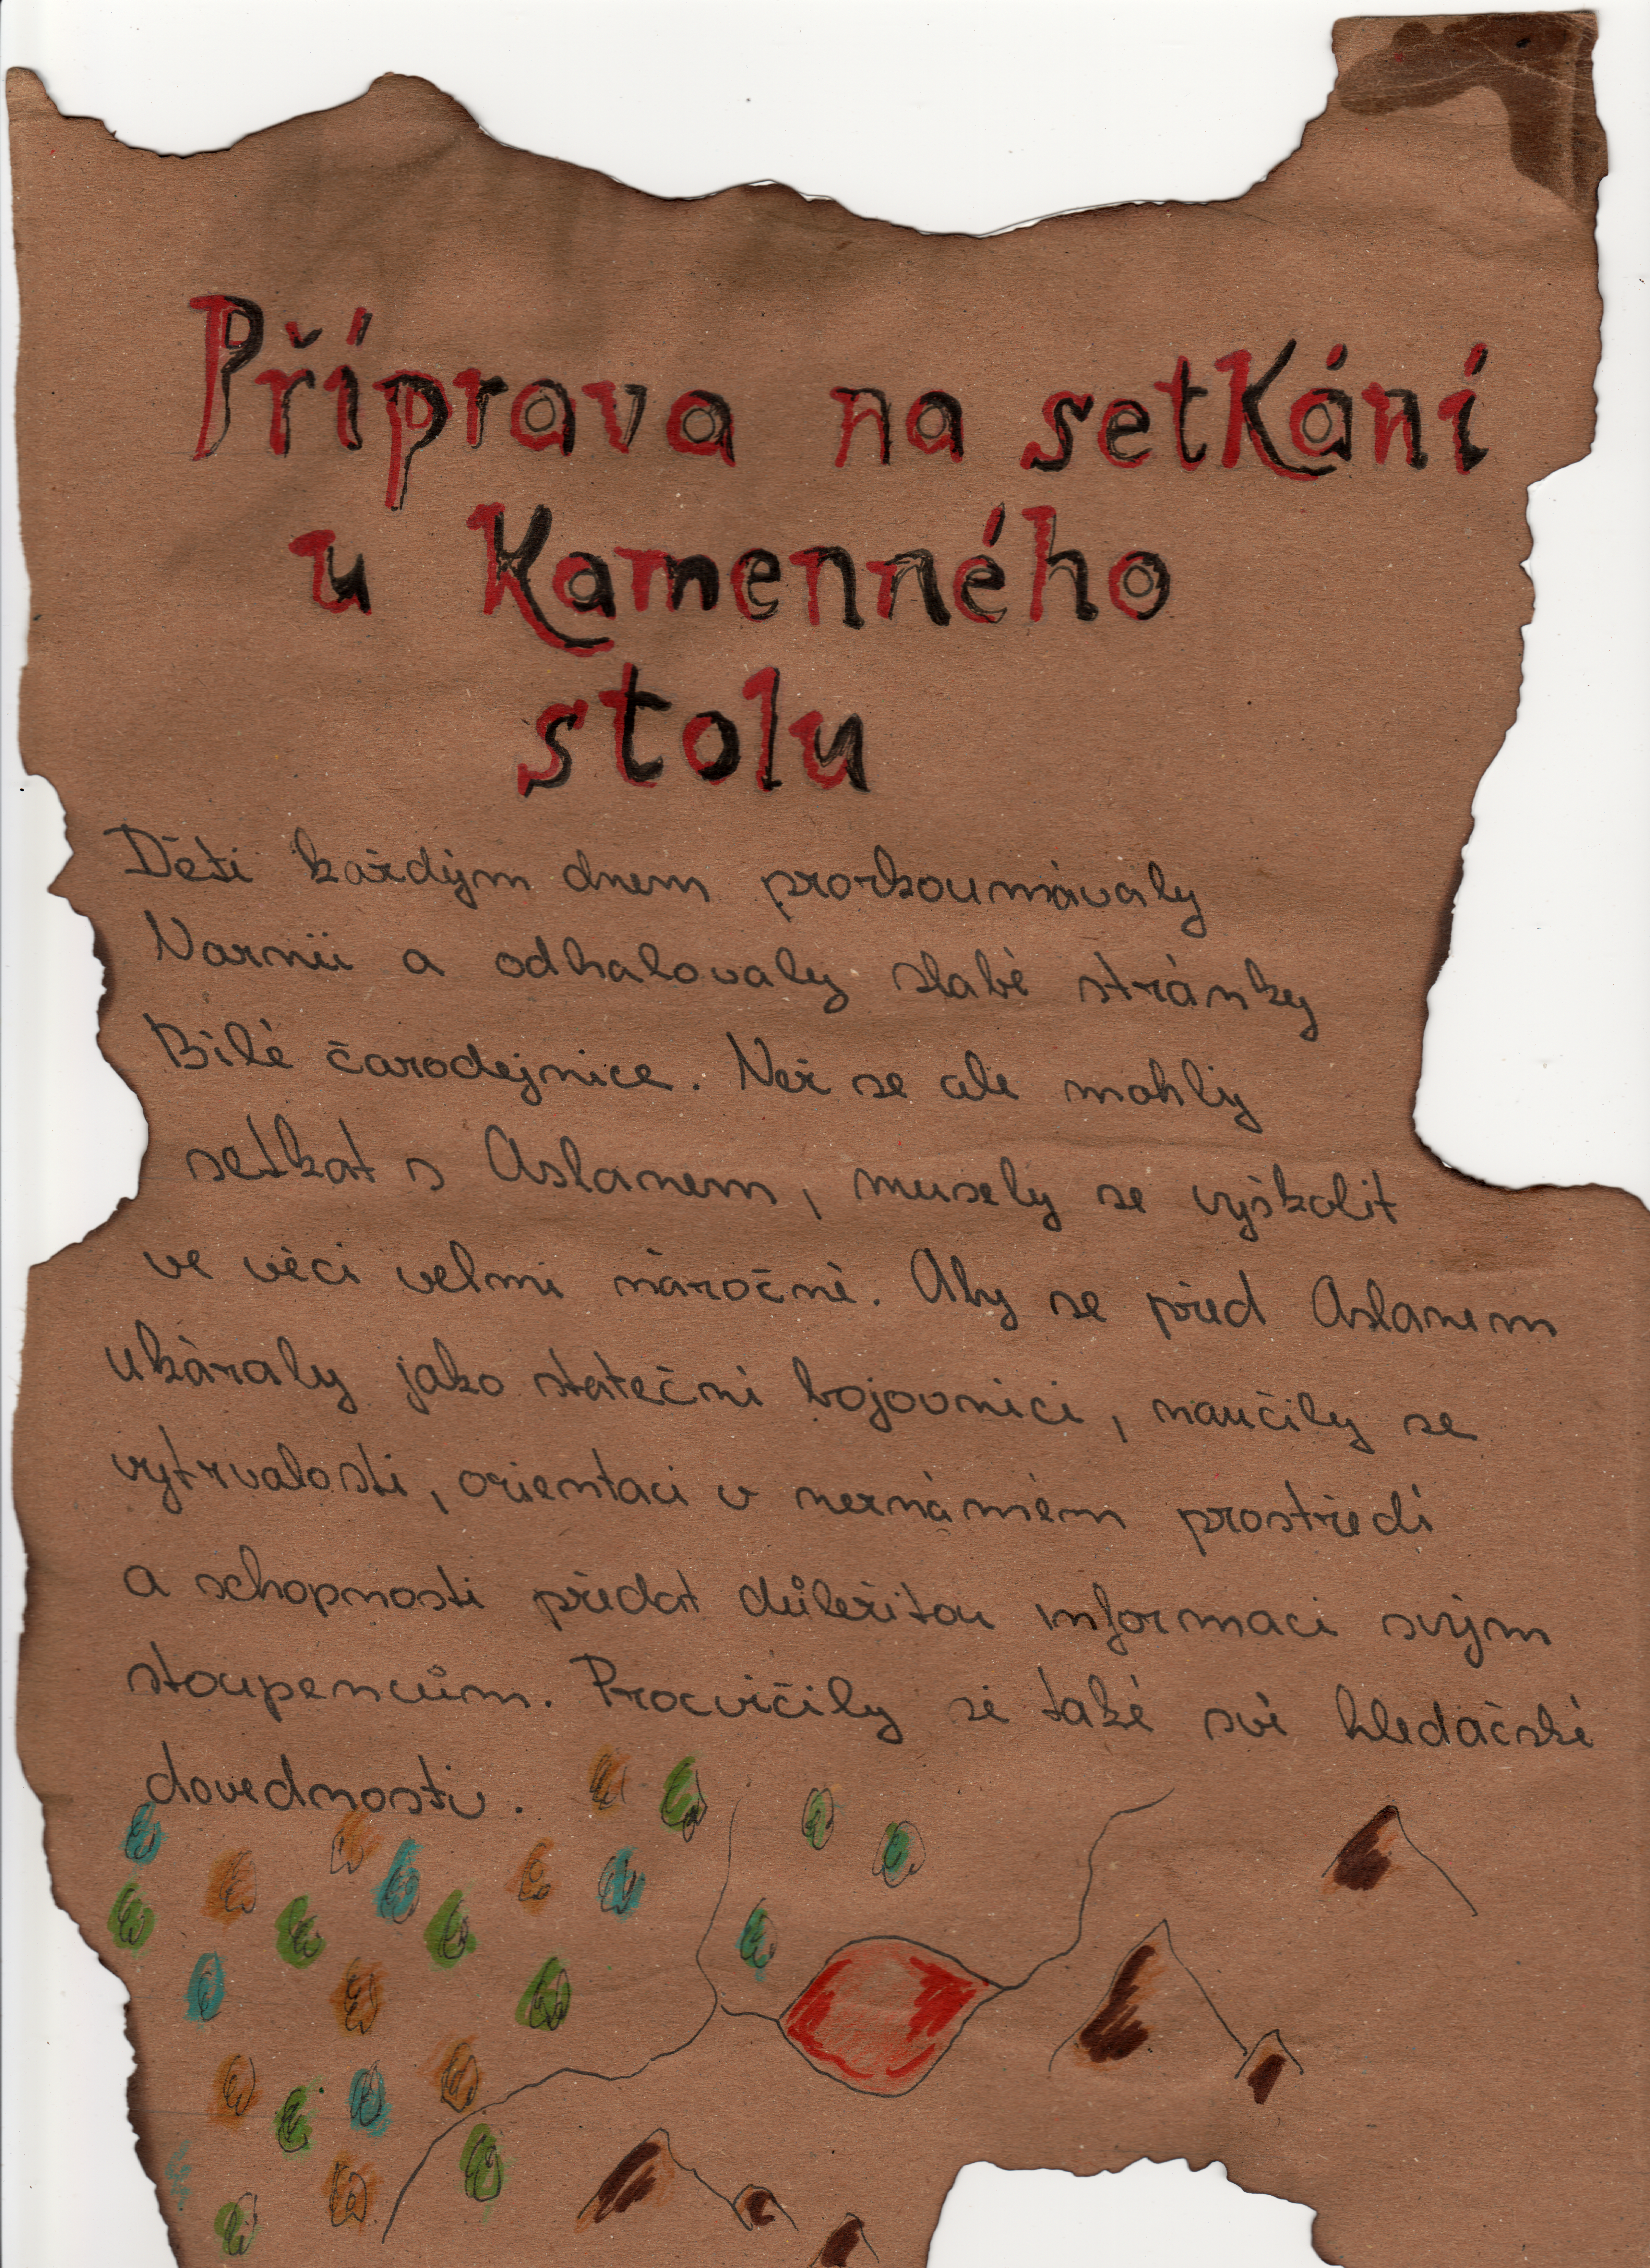 Příprava na setkání
u Kamenného
stolu
Děti každým dnem prozkoumávaly
Narnii a odhalovaly slabé stránky
Bílé čarodejnice. Než se ale mohly
setkat s Aslanem, musely se vyškolit
ve věci velmi náročné. Aby se před Aslanem
ukázaly jako stateční bojovníci, naučily se
vytrvalosti, orientaci v neznámém prostředí
a schopnosti předat důležitou informaci svým
stoupencům. Procvičily si také své hledáčské
dovednosti.